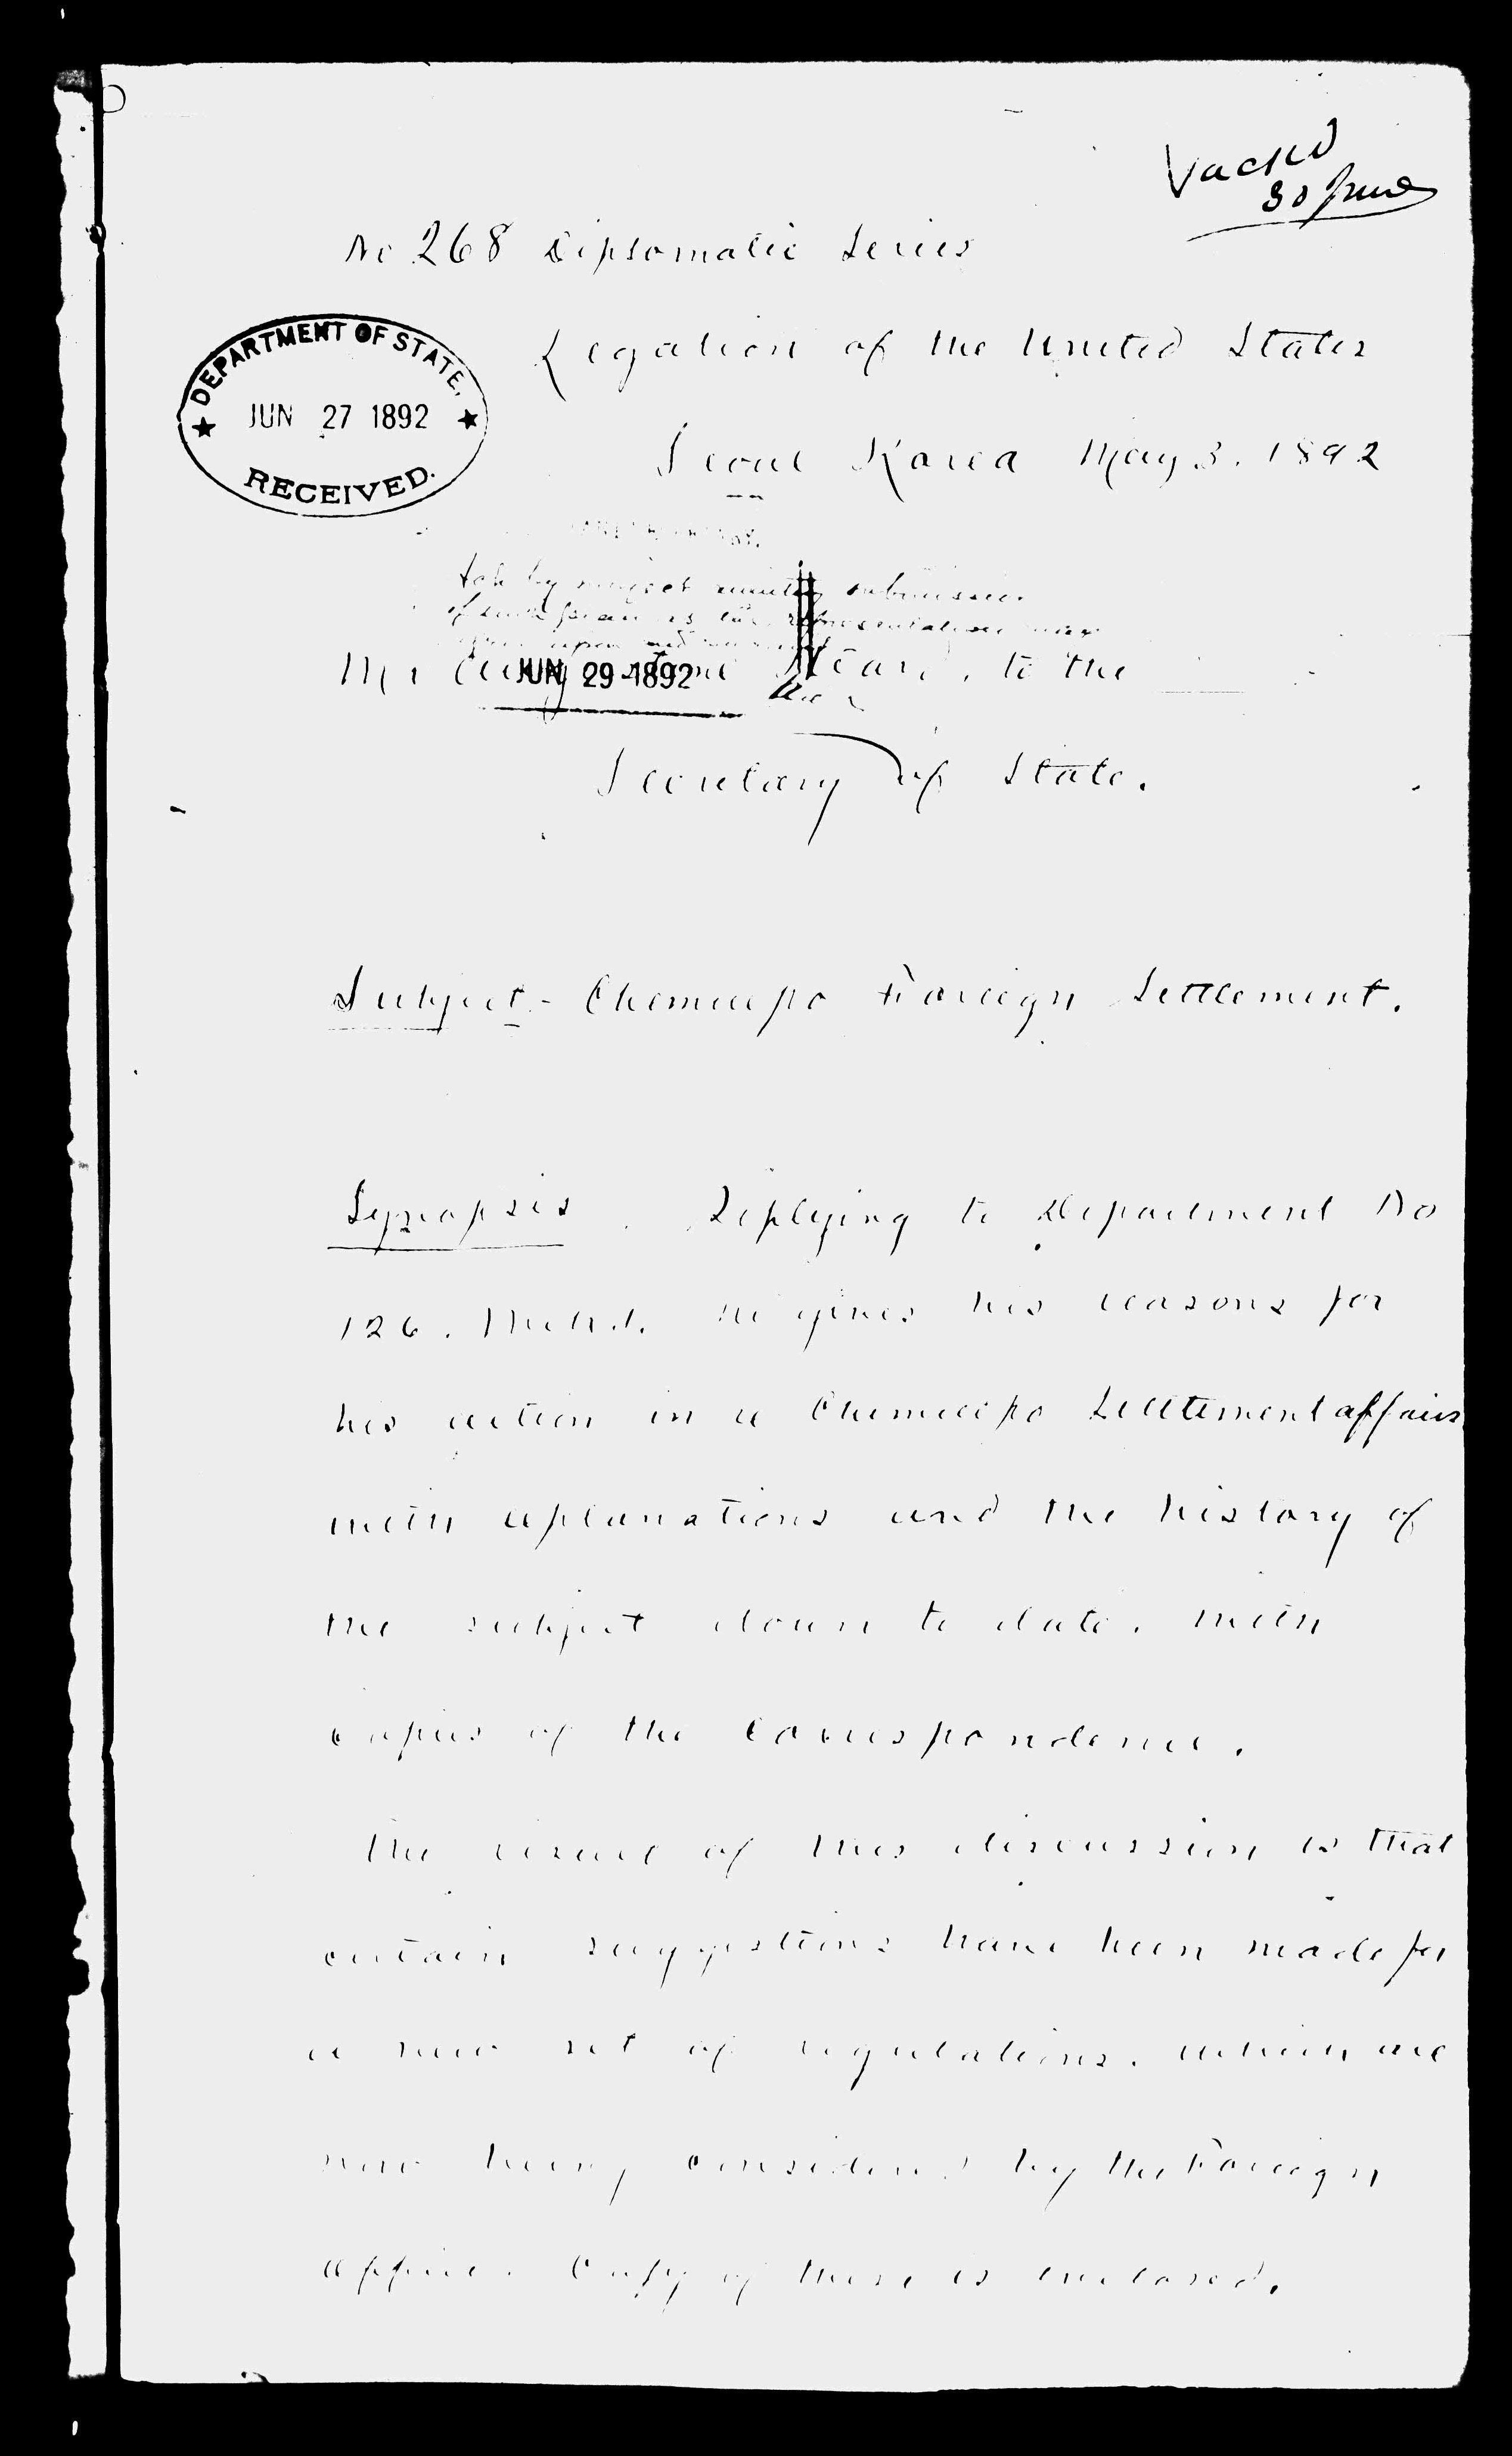 Vackd
30 June
No 268 Diplomatic Series
DEPARTMENT OF STATE,
JUN 27 1892
RECEIVED.
Legation of the United States
Seoul Korea May 3. 1892
submission
JUN 29 1892
Mr Augustine Heard, to the
Secretary of State.
Subject - Chemulpo Foreign Settlement.
Synopsis. Replying to Department No
126. he gives his reasons for
his action in a Chemulpo Settlement affairs
with explanations and the history of
the subject down to date. with
copies of the correspondence.
The result of this discussion is that
certain suggestions have been made for
a new set of regulations. which are
now being considered by the Foreign
Office. Copy of these is enclosed.